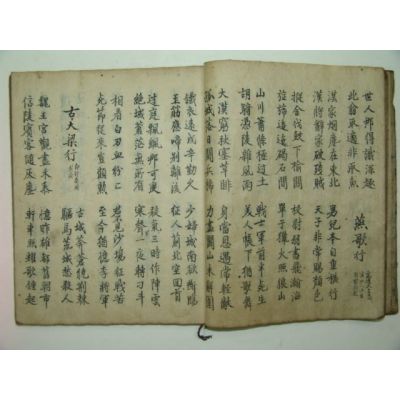 世人那得識深趣
此翁取適非取魚
燕歌行
漢家煙塵在東北
漢將辭家破殘賊
男兒本自重橫行
天子非常賜顏色
摐金伐鼓下榆關
旌旆逶迤碣石間
校尉羽書飛瀚海
單于獵火照狼山
山川蕭條極邊土
胡騎憑陵雜風雨
戰士軍前半死生
美人帳下猶歌舞
大漠窮秋塞草腓
孤城落日鬥兵稀
身當恩遇常輕敵
力盡關山未解圍
鐵衣遠戍辛勤久
玉筯應啼別離後
少婦城南欲斷腸
征人薊北空回首
邊庭飄颻那可度
絕域蒼茫無所有
殺氣三時作陣雲
寒聲一夜傳刁斗
相看白刃血紛紛
死節從來豈顧勳
君不見沙場征戰苦
至今猶憶李將軍
古大梁行
古城莽蒼饒荆榛
驅馬荒城愁殺人
魏王宮觀盡禾黍
信陵賓客隨灰塵
憶昨雄都舊朝市
軒車照耀歌鐘起